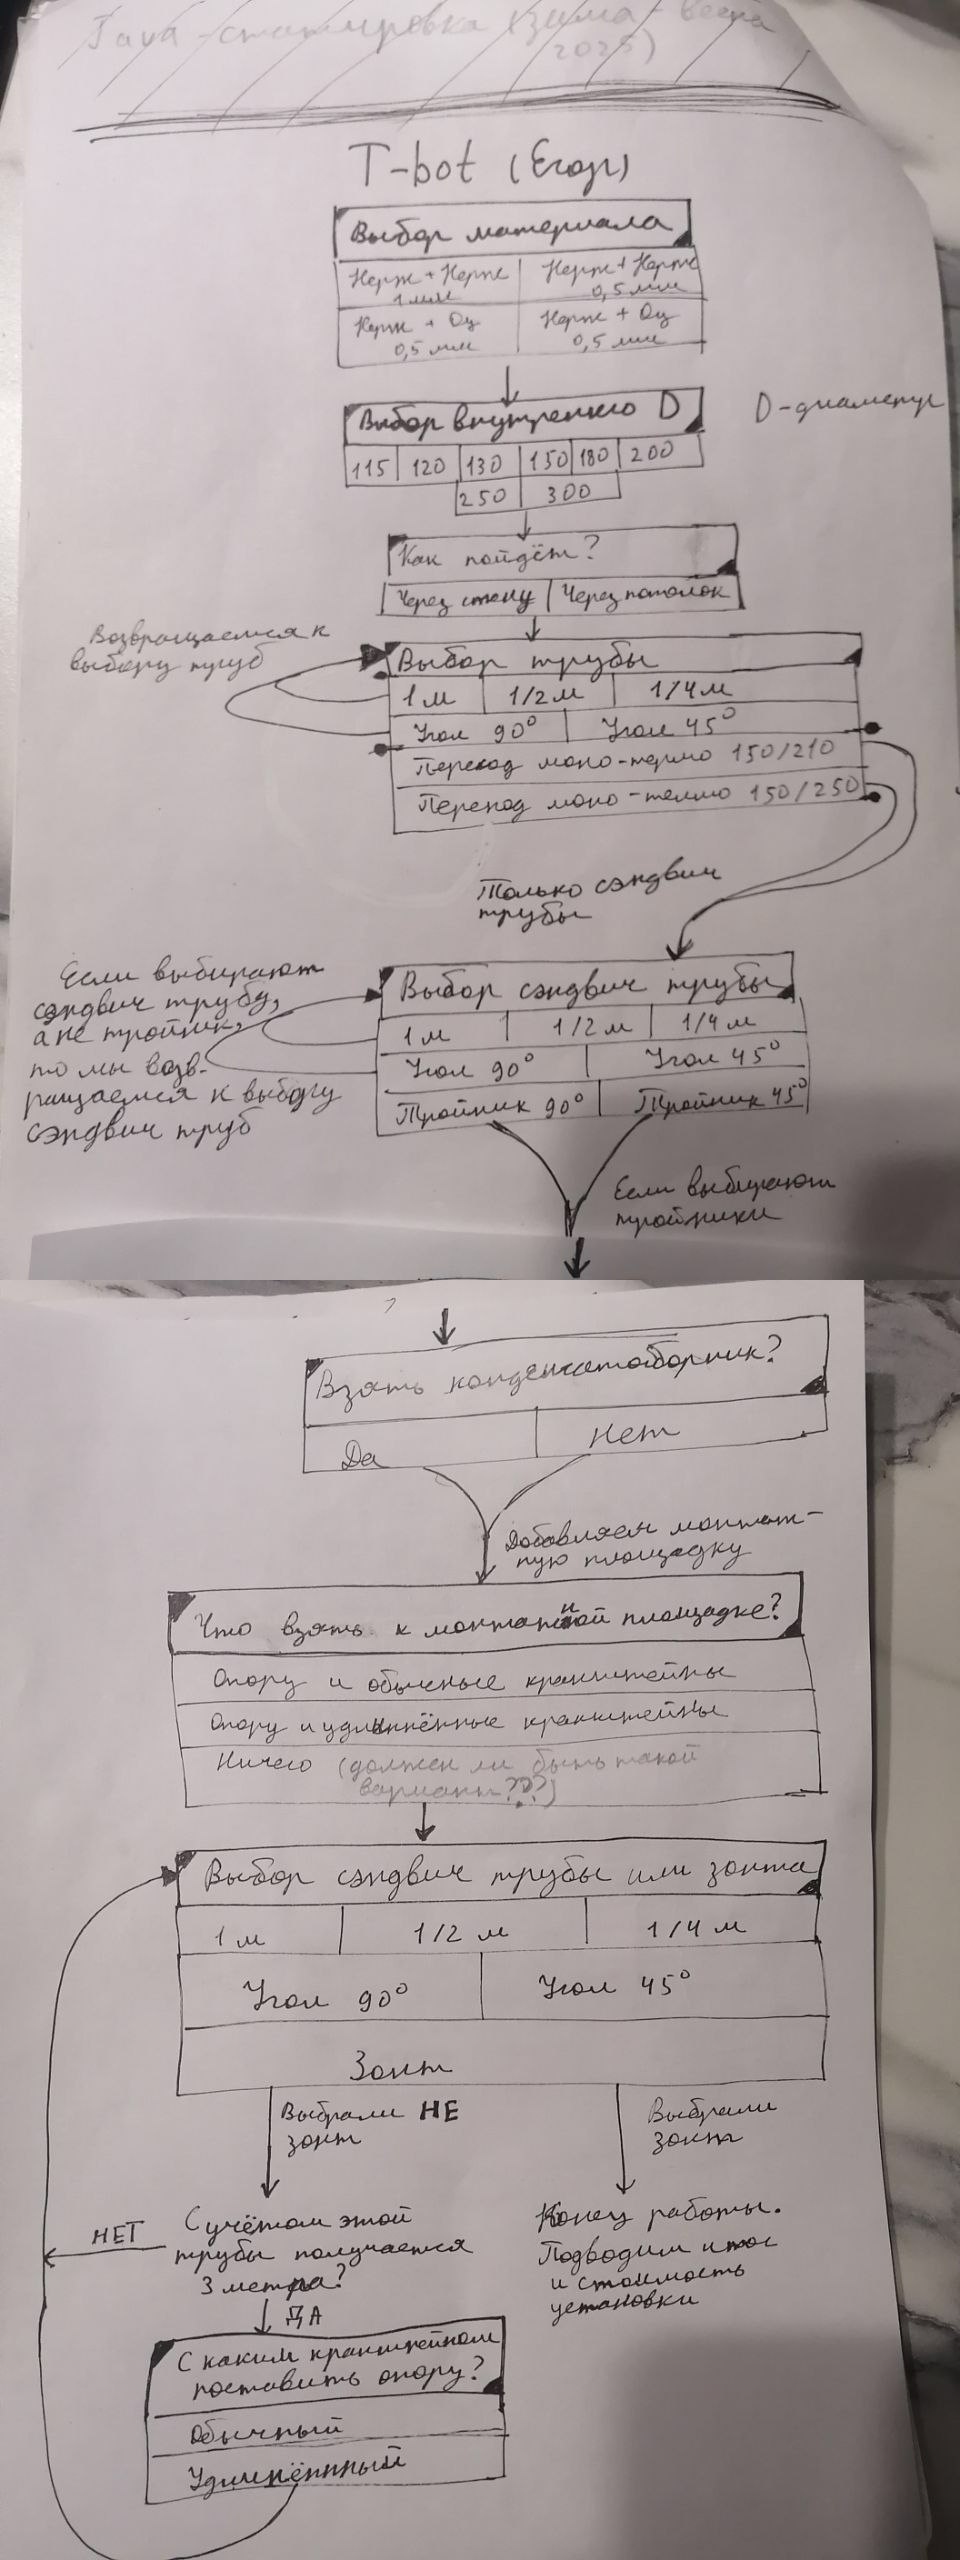 Java-стажировка (зима-весна
2025)
T-bot (Егор)
Выбор материала
Нерж + Нерж
1 мм
Нерж + Нерж
0,5 мм
Нерж + Оц
0,5 мм
Нерж + Оц
0,5 мм
Выбор внутреннего D
D-диаметр
115 120 130 150 180 200
250 300
Как пойдёт?
Через стену Через потолок
Возвращаемся к
выбору труб
Выбор трубы
1 м 1/2 м 1/4 м
Угол 90° Угол 45°
Переход моно-термо 150/210
Переход моно-термо 150/250
Только сэндвич
трубы
Если выбирают
сэндвич трубу,
а не тройник,
то мы возв-
ращаемся к выбору
сэндвич труб
Выбор сэндвич трубы
1 м 1/2 м 1/4 м
Угол 90° Угол 45°
Тройник 90° Тройник 45°
Если выбирают
тройники
Взять конденсатосборник?
Да Нет
Добавляем монтаж-
ную площадку
Что взять к монтажной площадке?
Опору и обычные кранштейны
Опору и удлиннённые кранштейны
Ничего (должен ли быть такой
вариант???)
Выбор сэндвич трубы или зонта
1 м 1/2 м 1/4 м
Угол 90° Угол 45°
Зонт
Выбрали НЕ
зонт
Выбрали
зонт
НЕТ
С учётом этой
трубы получается
3 метра?
Конец работы.
Подводим итог
и стоимость
установки
ДА
С каким кранштейном
поставить опору?
Обычный
Удлинённый